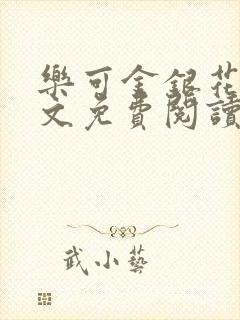 樂可金銀花
文免費閱讀
武小藝